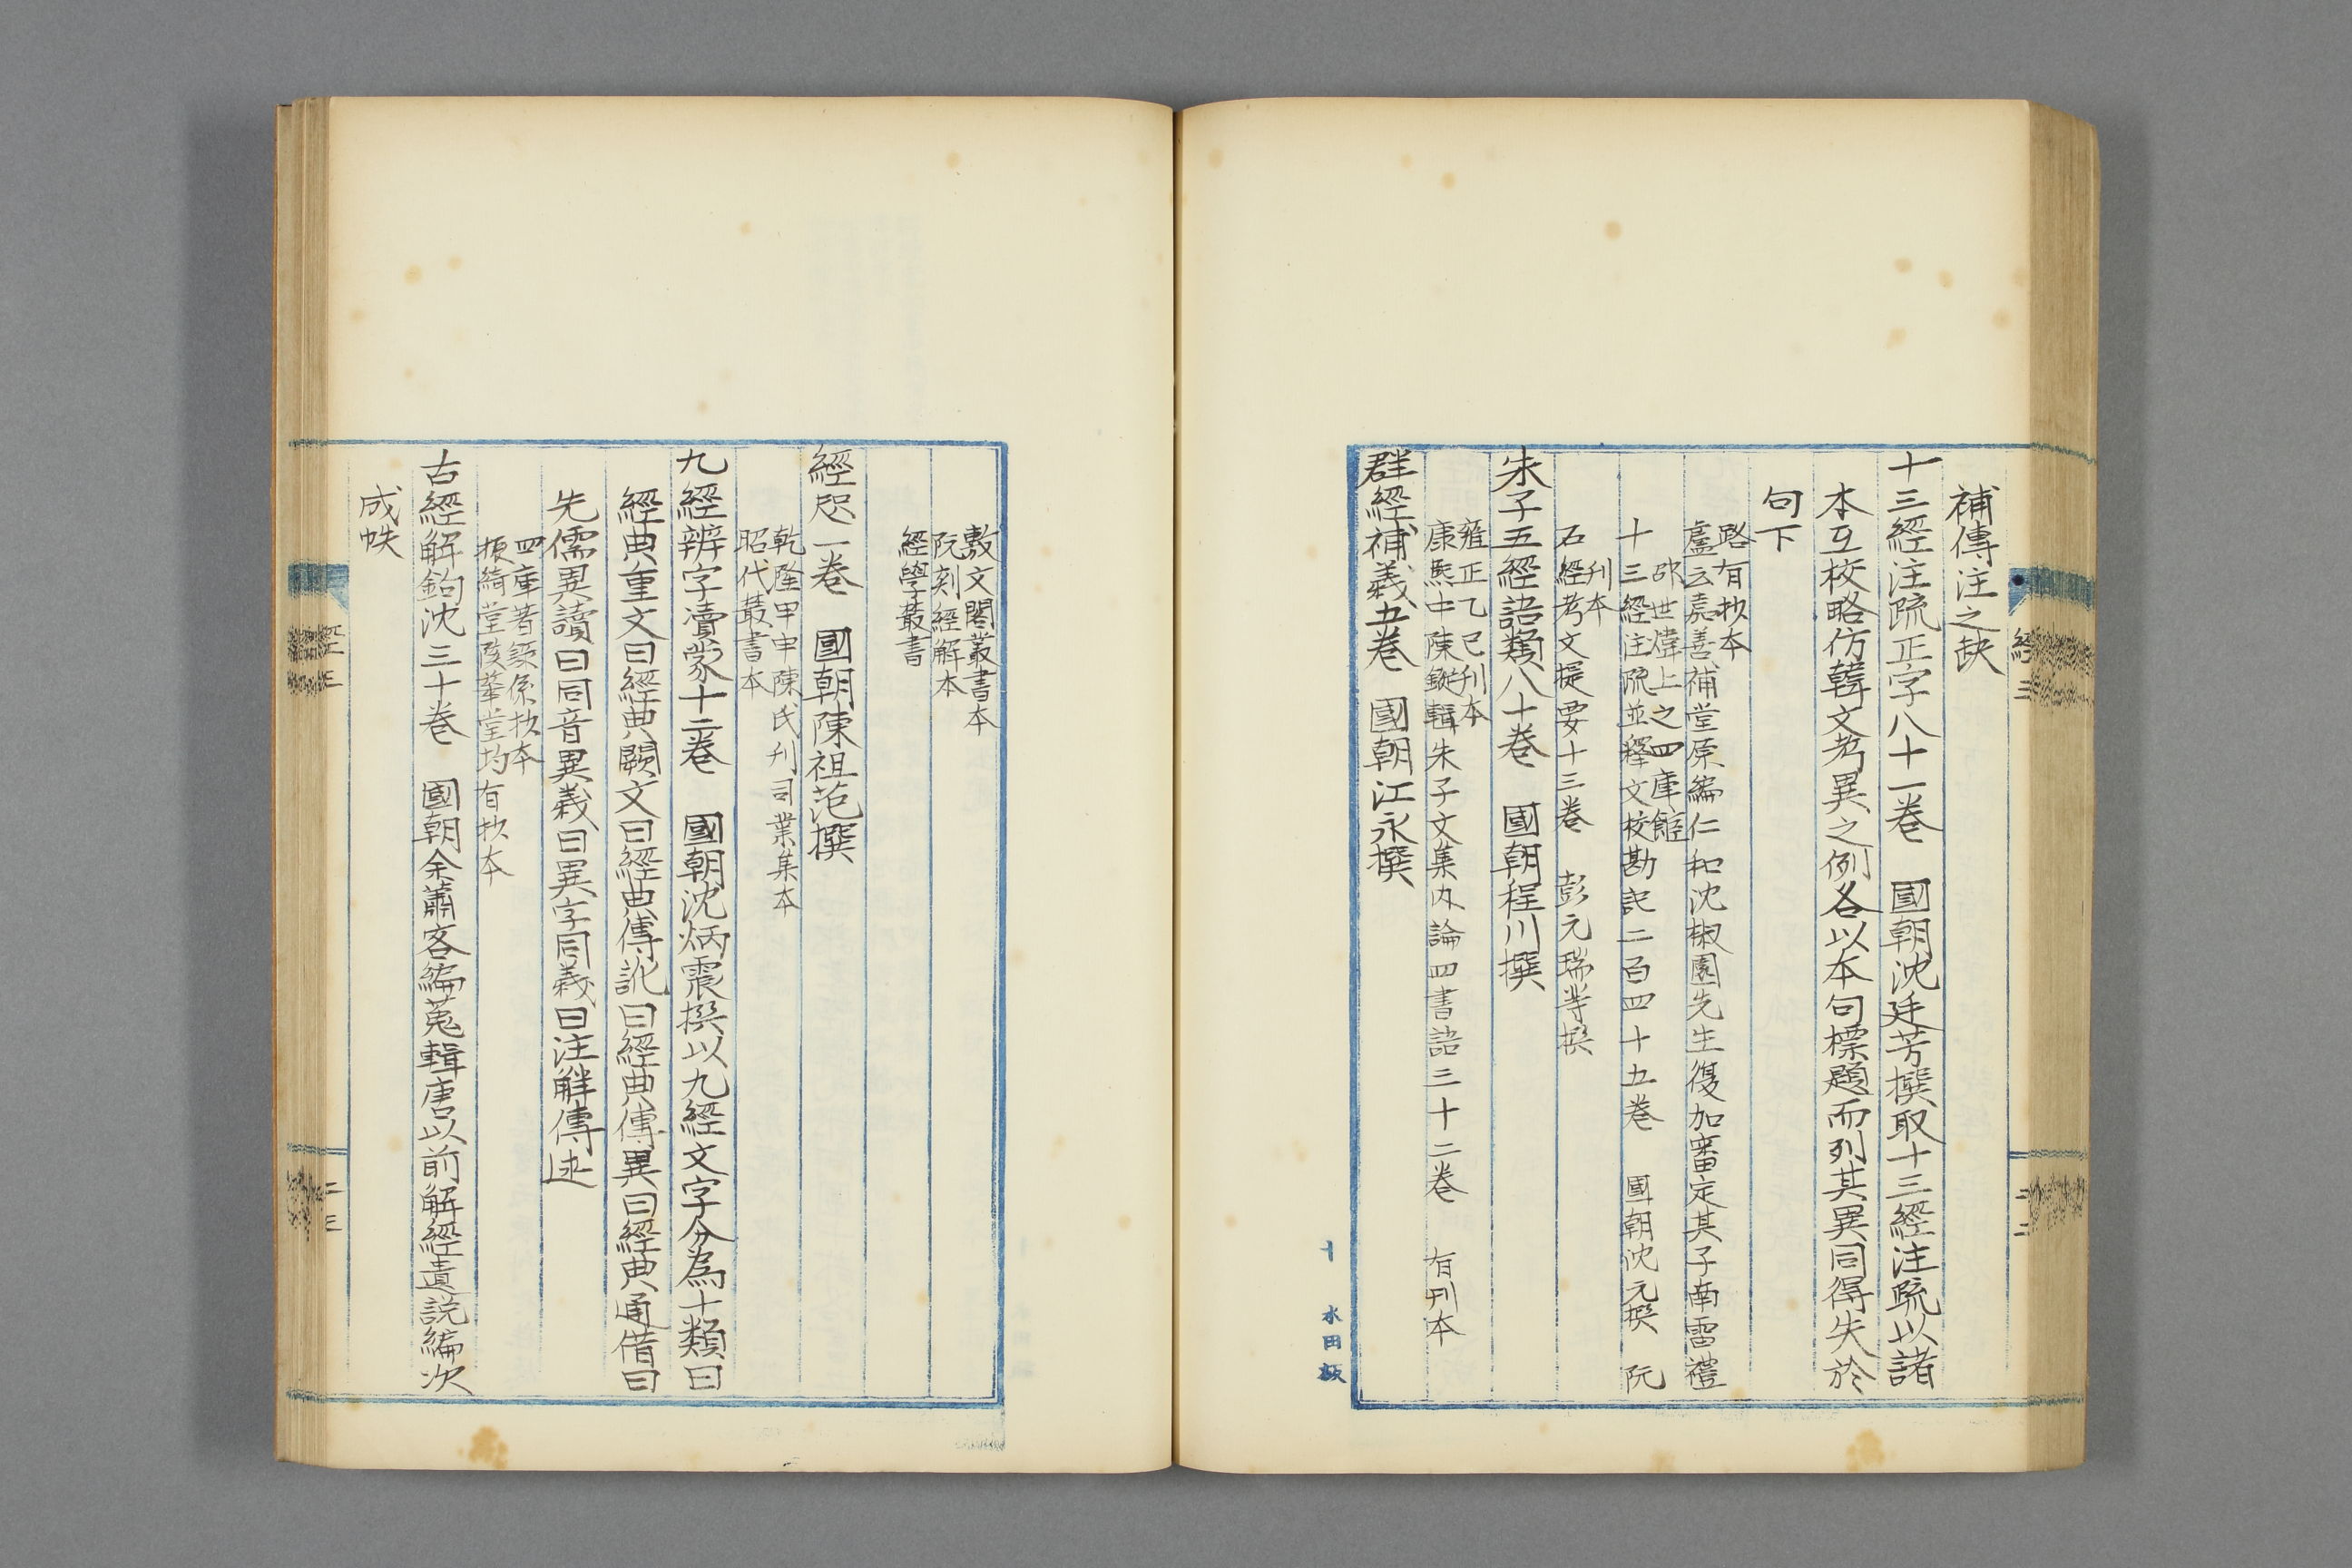 補傳注之缺
十三經注疏正字八十一卷　國朝沈廷芳撰取十三經注疏以諸
本互校略仿韓文考異之例各以本句標題而列其異同得失於
句下
路有抄本
盧云嘉善補堂原編仁和沈椒園先生復加審定其子南雷禮
部世煒上之四庫館
十三經注疏並釋文校勘記二百四十五卷　國朝沈元撰　阮
刊本
石經考文提要十三卷　彭元瑞等撰
朱子五經語類八十卷　國朝程川撰
雍正乙巳刊本
康熙中陳鏦輯朱子文集內論四書語三十二卷　有刊本
群經補義五卷　國朝江永撰
十　水田
經三
二二
敷文閣叢書本
阮刻經解本
經學叢書
經咫一卷　國朝陳祖范撰
乾隆甲申陳氏刊司業集本
昭代叢書本
九經辨字瀆蒙十二卷　國朝沈炳震撰以九經文字分為十類曰
經典重文曰經典闕文曰經典傳訛曰經典傳異曰經典通借曰
先儒異讀曰同音異義曰異字同義曰注解傳述
四庫著錄係抄本
振綺堂陔華堂均有抄本
古經解鉤沈三十卷　國朝余蕭客編蒐輯唐以前解經遺說編次
成帙
經三
二三